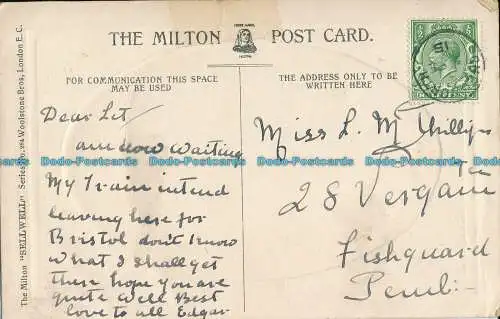 THE MILTON POST CARD.
FOR COMMUNICATION THIS SPACE
MAY BE USED
THE ADDRESS ONLY TO BE
WRITTEN HERE
The Milton "SELLWELL" Series No. Woolstone Bros, London E.C.
Dear Let
am now waiting
My Train intend
leaving here for
Bristol don't know
what I shall get
there hope you are
quite well Best
love to all Edgar
Miss L. M Phillips
28 Vergam
Fishguard
Pemb: